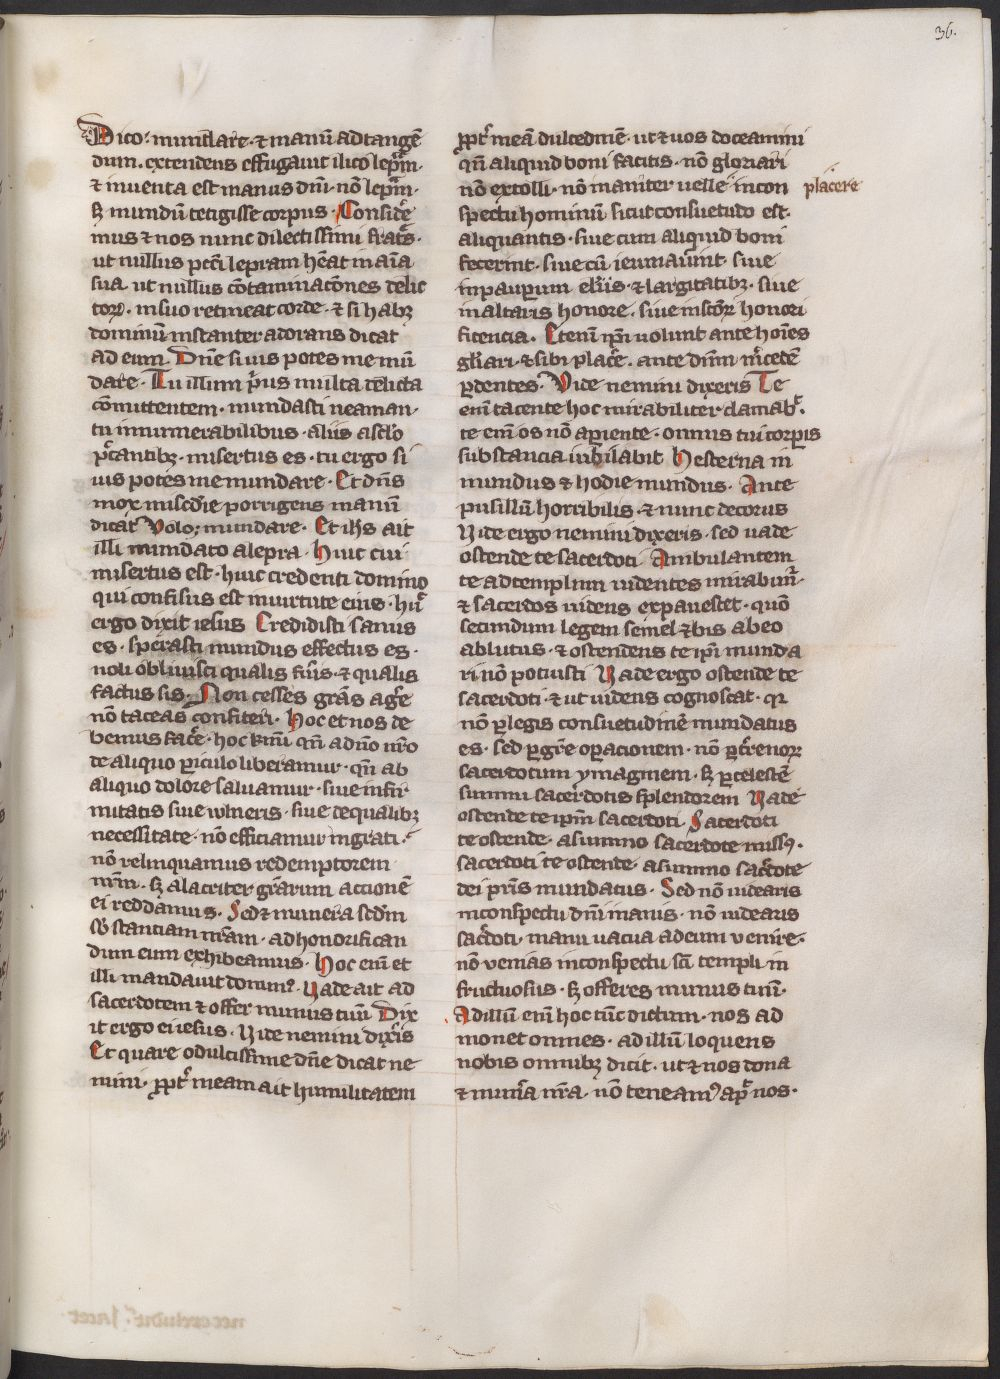 36.
Dico: mundare. ⁊ manū ad tangē
dum. extendens effugauit ilico lepͣm.
⁊ inuenta est manus dn̄i. nō lepͣm.
sꝫ mundū tetigisse corpus. Conside᷑
mus ⁊ nos nunc dilectissimi frat᷑s.
ut nullus pcc̄i lepram hēat in aīa
sua. ut nullus cōtaminac̄ones delic
toꝝ. in suo retineat corde. ⁊ si habꝫ
dominū instanter adorans dicat
ad eum. Dn̄e si uis potes me mū
dare. Tu illum pͥus multa delicta
cōmittentem. mundasti neaman.
tu innumerabilibus. aliis a sc̄lo
p᷑cantibꝫ. misertus es. tu ergo si
uis potes me mundare. Et dn̄s
mox mis̄cdie porrigens manū
dicat Volo; mundare. Et ih̄s ait
illi mundato a lepra. Huic cui
misertus est. huic credenti domino
qui confisus est in uirtute eius. hu᷑
ergo dixit iesus Credidisti sanus
es. sperasti mundus effectus es.
noli obliuisci qualis fu᷑is. ⁊ qualis
factus sis. Non cesses grās ag᷑e
nō taceas confiteri. Hoc et nos de
bemus fac᷑e. hoc frm̄ qn̄ a dn̄o nr̄o
de aliquo ꝑiculo liberamur. qn̄ ab
aliquo dolore saluamur. siue infir
mitatis siue wlneris. siue de qualibꝫ
necessitate. nō efficiamur ingrati.
nō relinquamus redemptorem
nr̄m. sꝫ alacriter grārum actionē
ei reddamus. Sed ⁊ munera sedm̄
sb̄stantiam nr̄am. ad honorifican
dum eum exhibeamus. Hoc em̄ et
illi mandauit dominꝰ. Uade ait ad
sacerdotem ⁊ offer munus tuū Dix
it ergo ei iesus. Vide nemini dix᷑is
Et quare o dulcissime dn̄e dicat ne
mini. ꝓpt᷑ meam ait humilitatem
ꝓpt᷑ meā dulcedinē. ut ⁊ uos doceamini
qn̄ aliquid boni facitis. nō gloriari
nō extolli. nō inaniter uelle in con
placere
spectu hominū sicut consuetudo est.
aliquantis. siue cum aliquid boni
fecerint. siue cū ieiunauint. siue
in pauꝑum eliis. ⁊ largitatibꝫ. siue
in altaris honore. siue in sc̄oꝝ honori
ficencia. Etenī ip̄i uolunt ante hoīes
gl̄iari. ⁊ sibi plac᷑e. ante dnm̄ m᷑cedē
ꝑdentes. Vide nemini dixeris Te
em̄ tacente hoc mirabiliter clamab᷑.
te em̄ os nō aꝑiente. omnis tui corꝑis
substancia iubilabit Hesterna in
mundus ⁊ hodie mundus. Ante
pusillū horribilis. ⁊ nunc decorus
Vide ergo nemini dixeris. sed uade
ostende te sacerdoti Ambulantem
te ad templum uidentes mirabun᷑.
⁊ sacerdos uidens expauescet. quō
secundum legem semel ⁊ bis a beo
ablutus. ⁊ ostendens te ip̄i munda
ri nō potuisti Uade ergo ostende te
sacerdoti. ⁊ ut uidens cognoscat. qꝛ
nō ꝑ legis consuetudinē mundatus
es. sed ꝑ gr̄e oꝑacionem. nō ꝑ t᷑renoꝝ
sacerdotum ymaginem. sꝫ ꝑ celestē
summi sacerdotis splendorem Uade
ostende te ip̄m sacerdoti. Sacerdoti
te ostende. a summo sacerdote missꝰ.
sacerdoti te ostende. a summo sac᷑dote
dei pr̄is mundatus. Sed nō uidearis
in conspectu dn̄i inanis. nō uidearis
sac᷑doti. manu uacua ad eum venire.
nō venias in conspectu sc̄i templi in
fructuosus. sꝫ offeres munus tuū.
Ad illū em̄ hoc tūc dictum. nos ad
monet omnes. ad illū loquens
nobis omnibꝫ dicit. ut ⁊ nos dona
⁊ mun᷑a nr̄a. nō teneamꝰ ap᷑ nos.